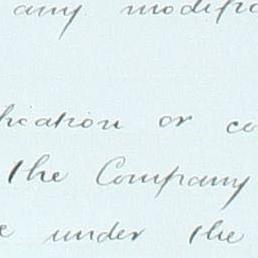 any modific
hication or co
the Company
under the